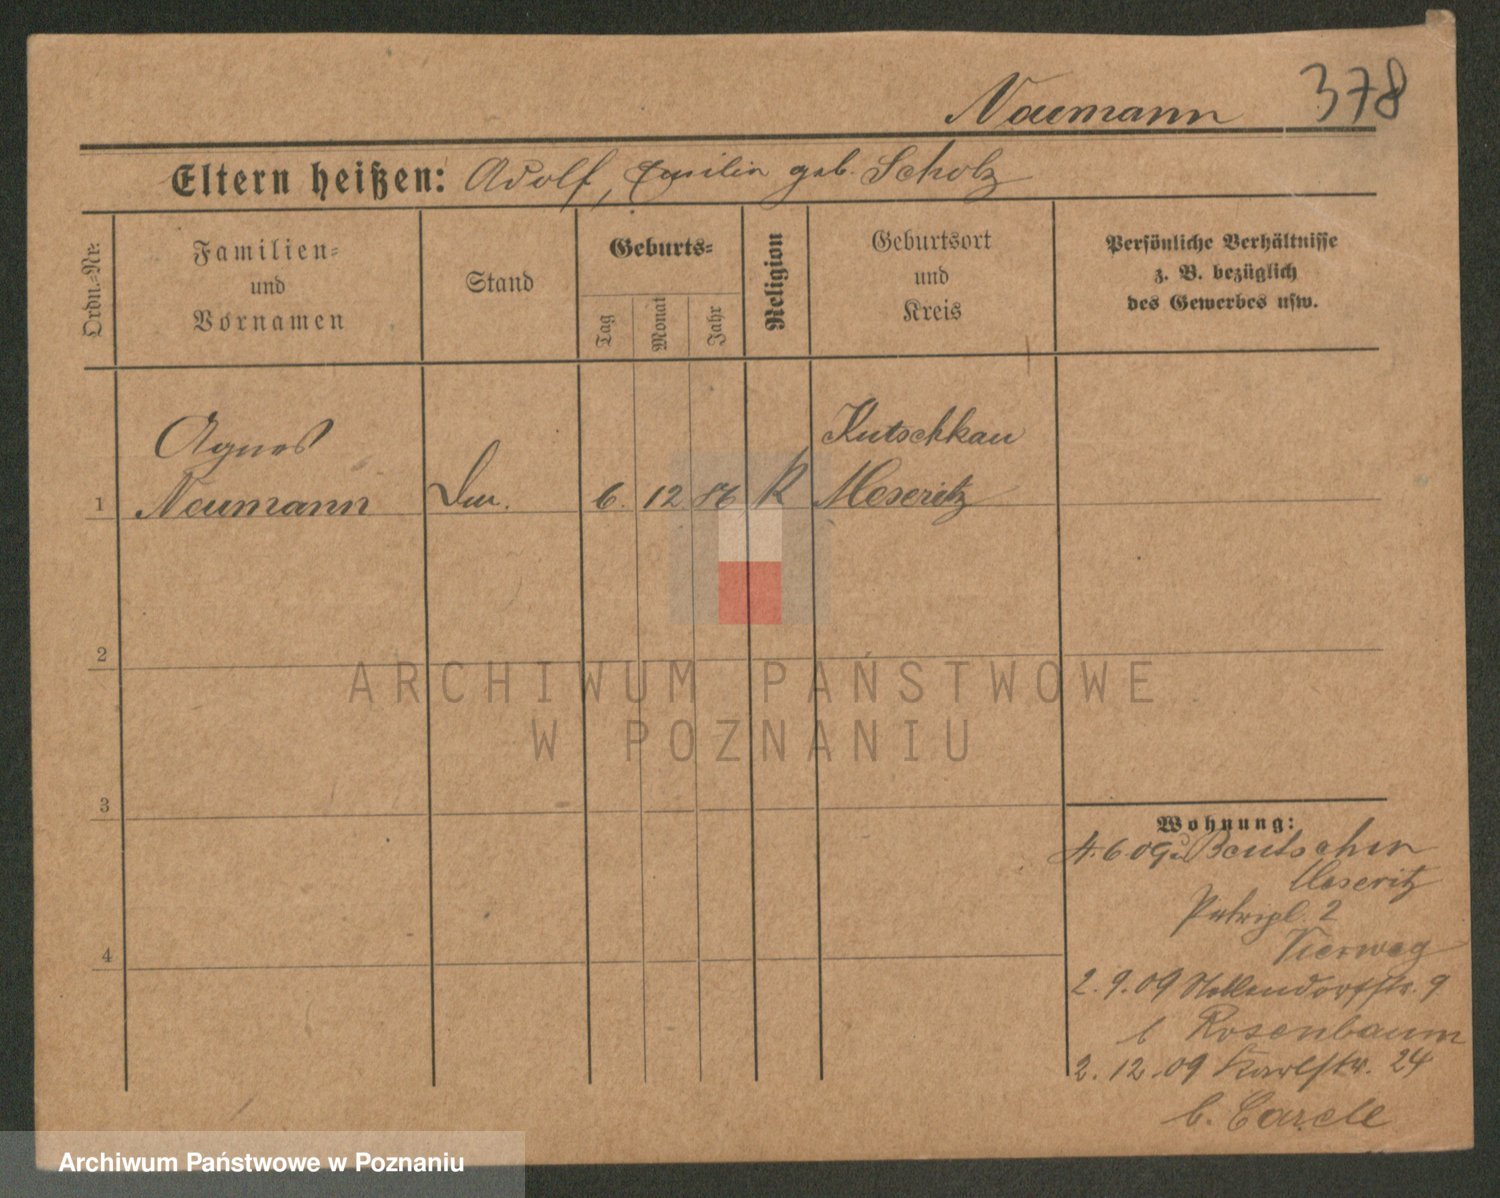 Naumann 378
Eltern heißen: Adolf, Emilie geb. Scholz
Ordn.-Nr.
Familien-
und
Vornamen
Stand
Geburts-
Tag
Monat
Jahr
Religion
Geburtsort
und
Kreis
Persönliche Verhältnisse
z. B. bezüglich
des Gewerbes usw.
Agnes Kutschkau
1 Neumann 6. 12 86 K Meseritz
2
3
4
Wohnung:
4.6.09 Bentschen
Meseritz
2
Vierweg
2.9.09 Nollendorfstr. 9
b Rosenbaum
2.12.09 Karlstr. 24
b.
ARCHIWUM PAŃSTWOWE
W POZNANIU
Archiwum Państwowe w Poznaniu